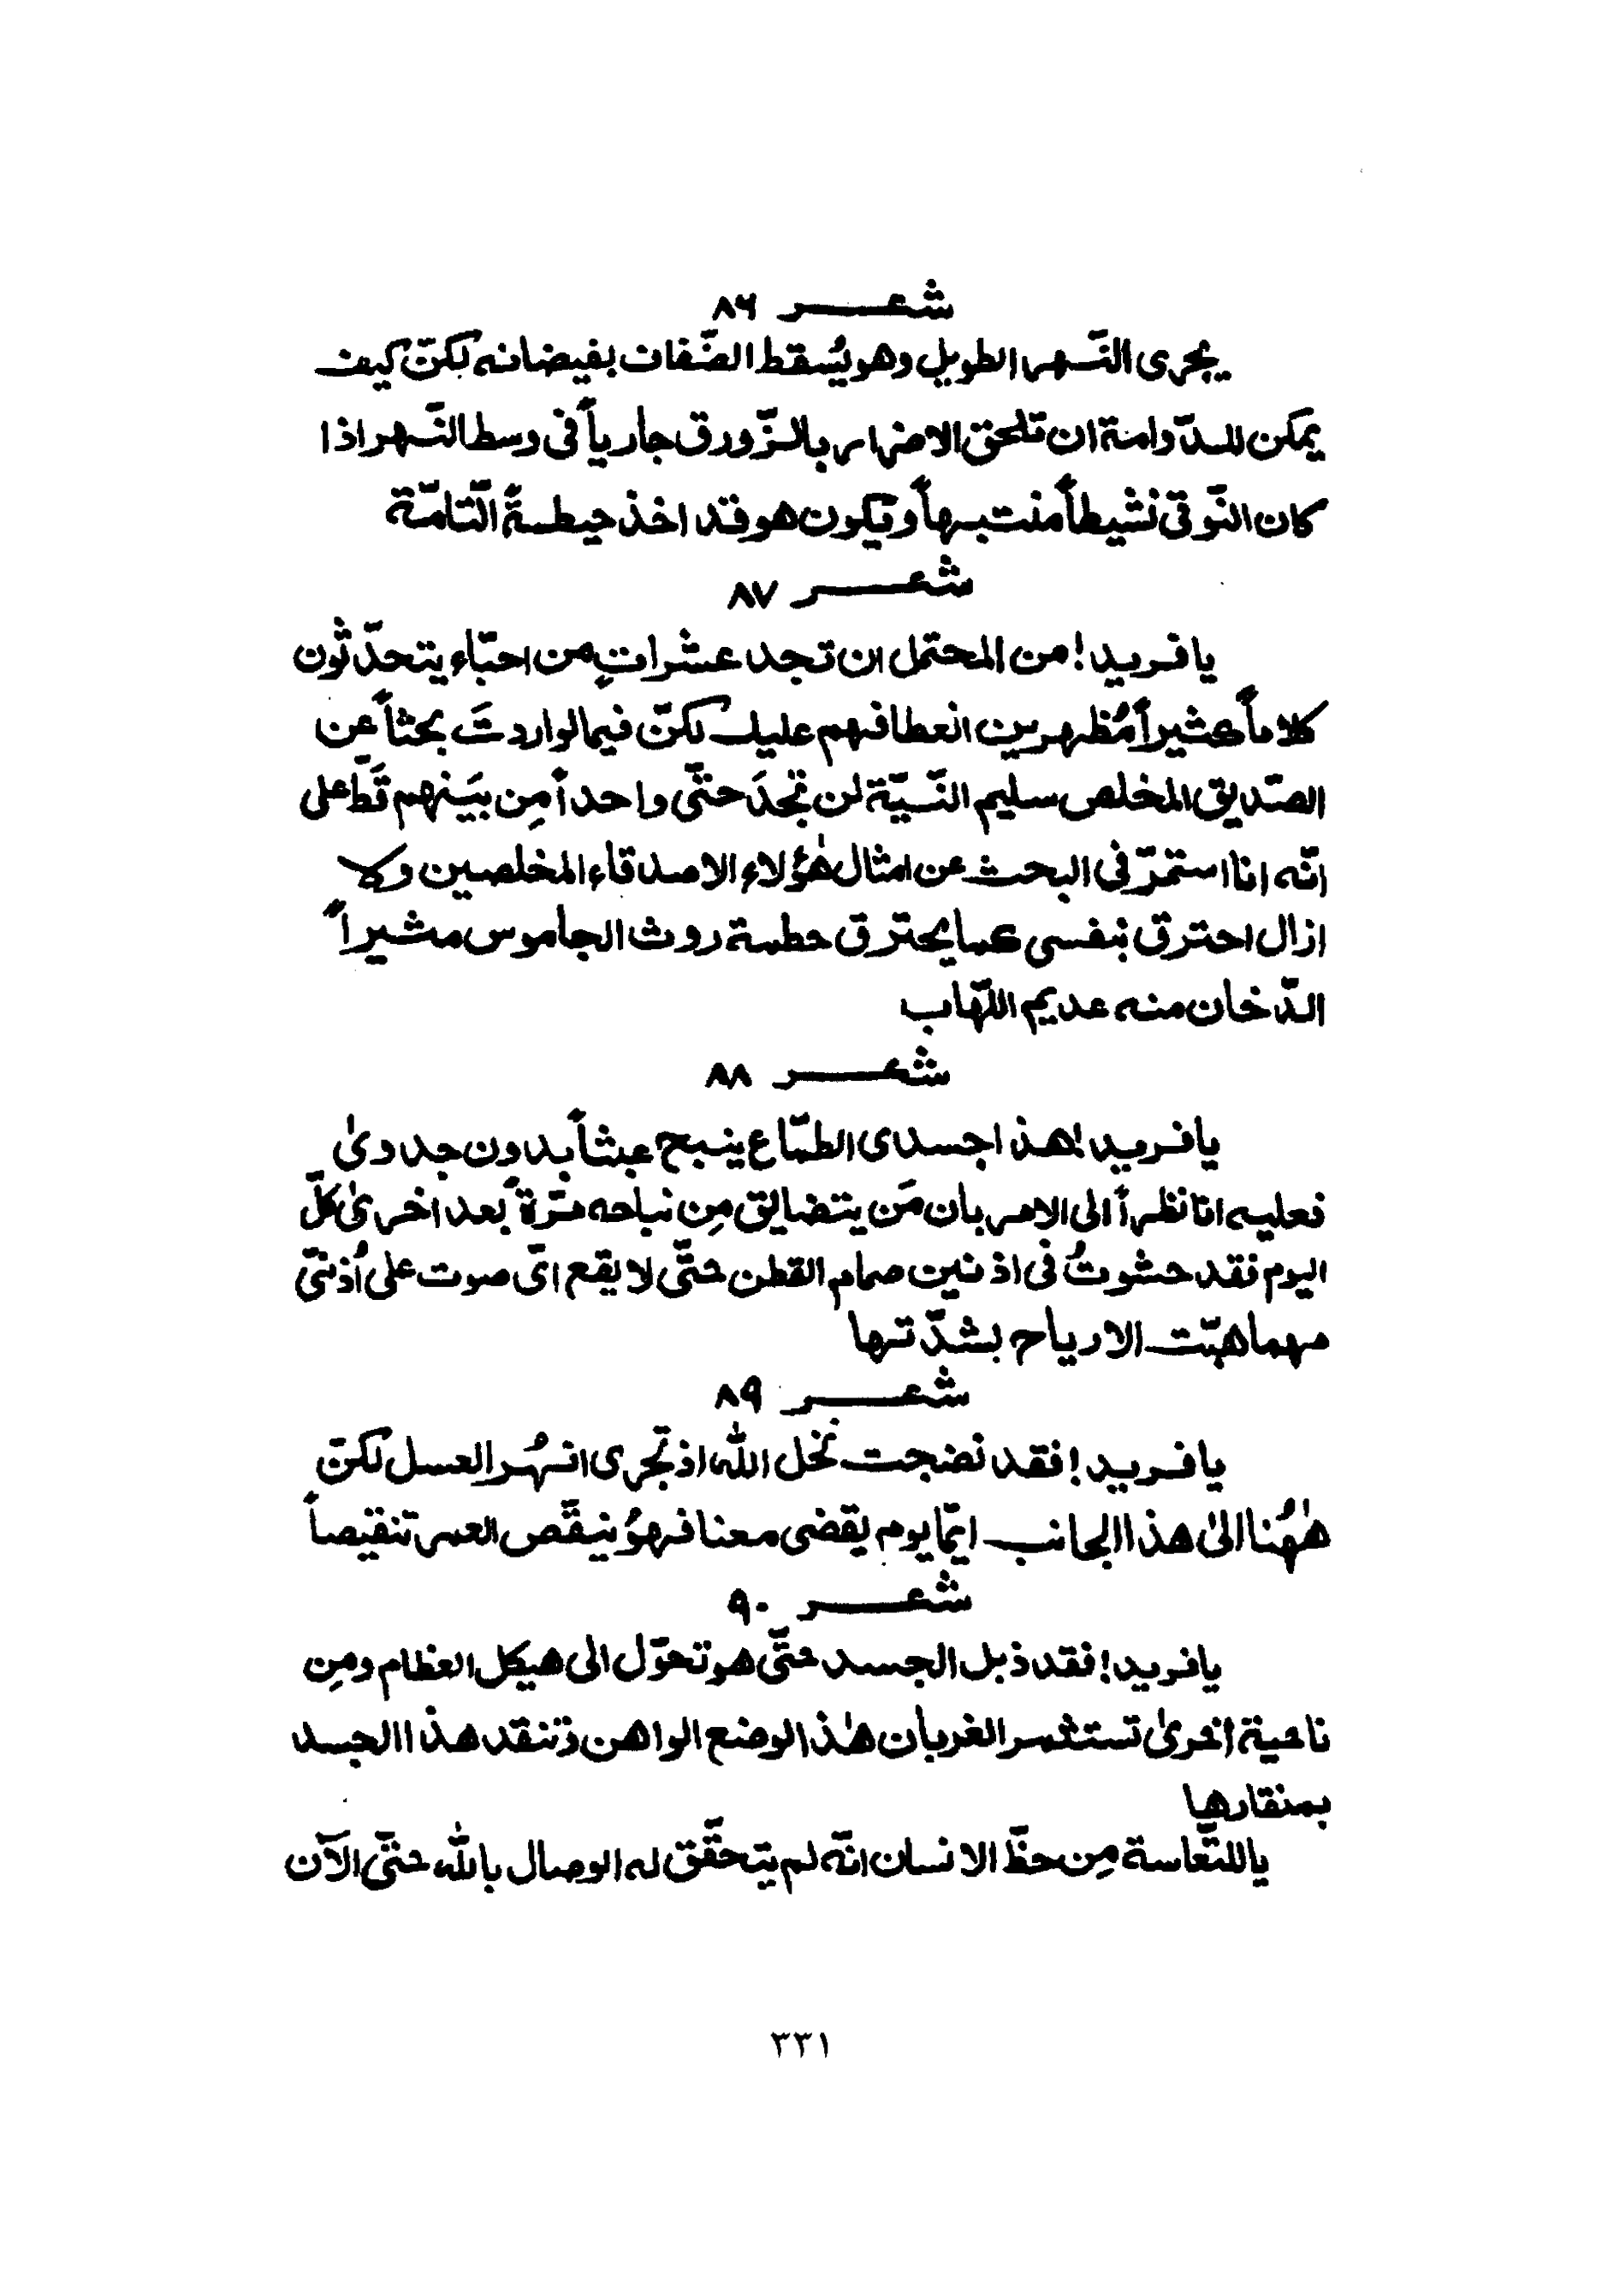 شعر ٨٦
يجرى النّهر الطويل وهو يُسقط الضّفات بفيضانه لكنّ كيف
يمكن للدّوامة ان تلحق الاضرار بالزّورق جارياً فى وسط النّهر اذا
كان النّوتى نشيطاً منتبهاً ويكون هو قد اخذ حيطةً التّامّة
شعر ٨٧
يا فريد! من المحتمل ان تجد عشراتٍ من احبّاء يتحدّثون
كلاماً كثيراً مُظهرين انعطافهم عليك لكنّ فيما لو اردتَ بحثاً عن
الصّديق المخلص سليم النّيّة لن تجدَ حتّى واحداً مِن بَينهم قَطّ على
انّه انا استمرّ فى البحث عن امثال هٰؤلاء الاصدقاء المخلصين ولا
ازال احترق بنفسى كما يحترق حطمة روث الجاموس مثيراً
الدّخان منه عديم اللّهاب
شعر ٨٨
يا فريد! هذا جسدى الطمّاع ينبح عبثاً بدون جدوىٰ
فعليه انا نظراً الى الامر بان مَن يتضايق مِن نباحه مرّةً بعد اخرىٰ كلّ
اليوم فقد حشوتُ فى اذنين صمام القطن حتّى لا يقع اىّ صوت على اُذنىّ
مهما هبّت الارياح بشدّتها
شعر ٨٩
يا فريد! فقد نضجت نخل اللّٰه اذ تجرى انهُر العسل لكنّ
هٰهُنا الىٰ هذا الجانب ايّما يوم يقضى معنا فهوُ ينقّص العمر تنقيصاً
شعر ٩٠
يا فريد! فقد ذبل الجسد حتّى هو تحوّل الى هيكل العظام ومِن
ناحية اخرىٰ تستثمر الغربان هٰذا الوضع الواهن وتنقد هذا الجسد
بمنقارها
يا للتّعاسة مِن حظّ الانسان انّه لم يتحقّق له الوصال باللّٰه حتّى الآن
٣٣١